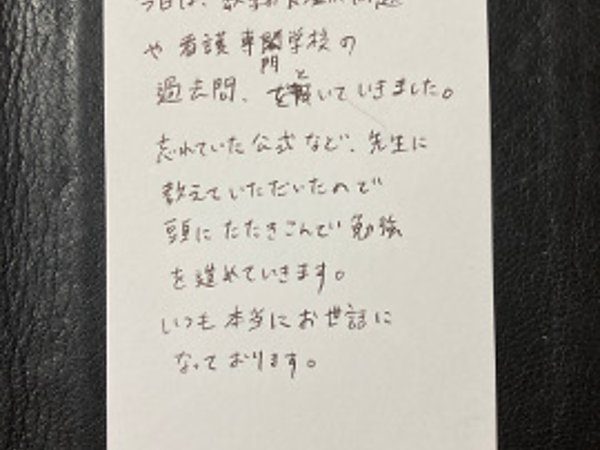 今日は、数学の
や看護専門学校の
過去問、を解いていきました。
忘れていた公式など、先生に
教えていただいたので
頭にたたきこんで勉強
を進めていきます。
いつも本当にお世話に
なっております。